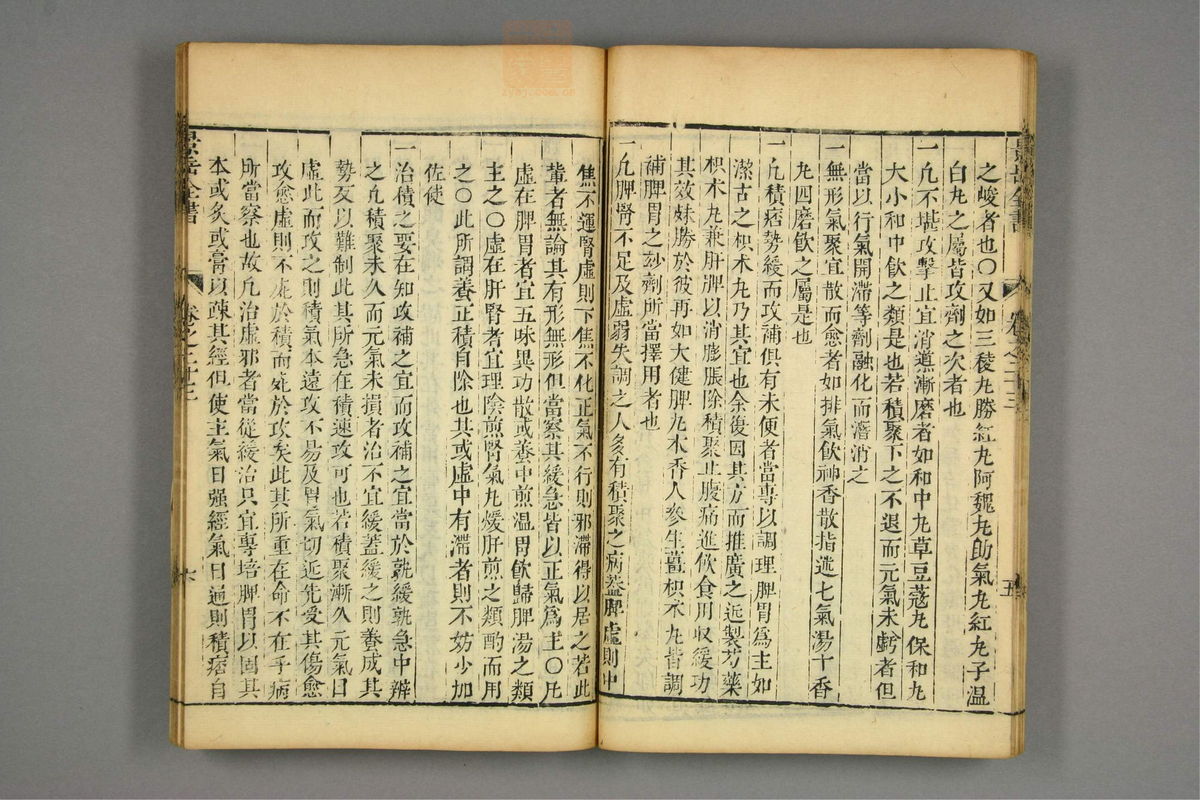 景岳全書
卷之二十三
五
之峻者也〇又如三稜丸勝紅丸阿魏丸助氣丸紅丸子温
白丸之屬皆攻劑之次者也
一凡不堪攻擊止宜消導漸磨者如和中丸草豆蔻丸保和丸
大小和中飲之類是也若積聚下之不退而元氣未虧者但
當以行氣開滯等劑融化而潛消之
一無形氣聚宜散而愈者如排氣飲神香散指迷七氣湯十香
丸四磨飲之屬是也
一凡積痞勢緩而攻補俱有未便者當專以調理脾胃爲主如
潔古之枳朮丸乃其宜也余復因其方而推廣之近製芍藥
枳朮丸兼肝脾以消膨脹除積聚止腹痛進飲食用収緩功
其效殊勝於彼再如大健脾丸木香人參生薑枳朮丸皆調
補脾胃之妙劑所當擇用者也
一凡脾腎不足及虛弱失調之人多有積聚之病葢脾虛則中
焦不運腎虛則下焦不化正氣不行則邪滯得以居之若此
輩者無論其有形無形但當察其緩急皆以正氣爲主〇凡
虛在脾胃者宜五味異功散或養中煎温胃飲歸脾湯之類
主之〇虛在肝腎者宜理陰煎腎氣丸煖肝煎之類酌而用
之〇此所謂養正積自除也其或虛中有滯者則不妨少加
佐使
一治積之要在知攻補之宜而攻補之宜當於孰緩孰急中辨
之凡積聚未久而元氣未損者治不宜緩葢緩之則養成其
勢反以難制此其所急在積速攻可也若積聚漸久元氣日
虛此而攻之則積氣本遠攻不易及胃氣切近先受其傷愈
攻愈虛則不死於積而死於攻矣此其所重在命不在乎病
所當察也故凡治虛邪者當從緩治只宜專培脾胃以固其
本或灸或膏以疎其經但使主氣日强經氣日通則積痞自
景岳全書
卷之二十三
六